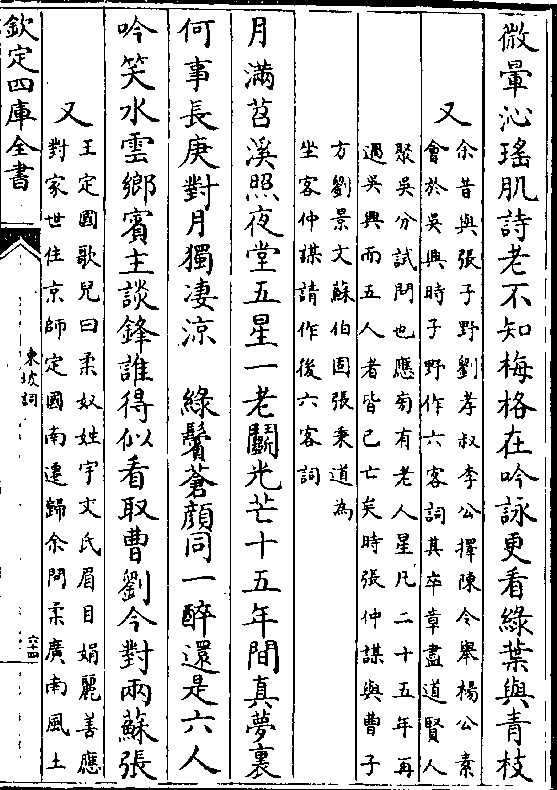 微暈沁瑤肌詩老不知梅格在吟詠更看綠葉與青枝
又
余昔與張子野劉孝叔李公擇陳令舉楊公素
會於吳興時子野作六客詞其卒章盡道賢人
聚吳分試問也應旁有老人星凡二十五年再
過吳興而五人者皆已亡矣時張仲謀與曹子
方劉景文蘇伯固張秉道為
坐客仲謀請作後六客詞
月滿苕溪照夜堂五星一老鬭光芒十五年間真夢裏
何事長庚對月獨凄涼　綠鬢蒼顔同一醉還是六人
吟笑水雲鄉賓主談鋒誰得似看取曹劉今對兩蘇張
又
王定國歌兒曰柔奴姓宇文氏眉目娟麗善應
對家世住京師定國南遷歸余問柔廣南風土
欽定四庫全書
東坡詞
六十四